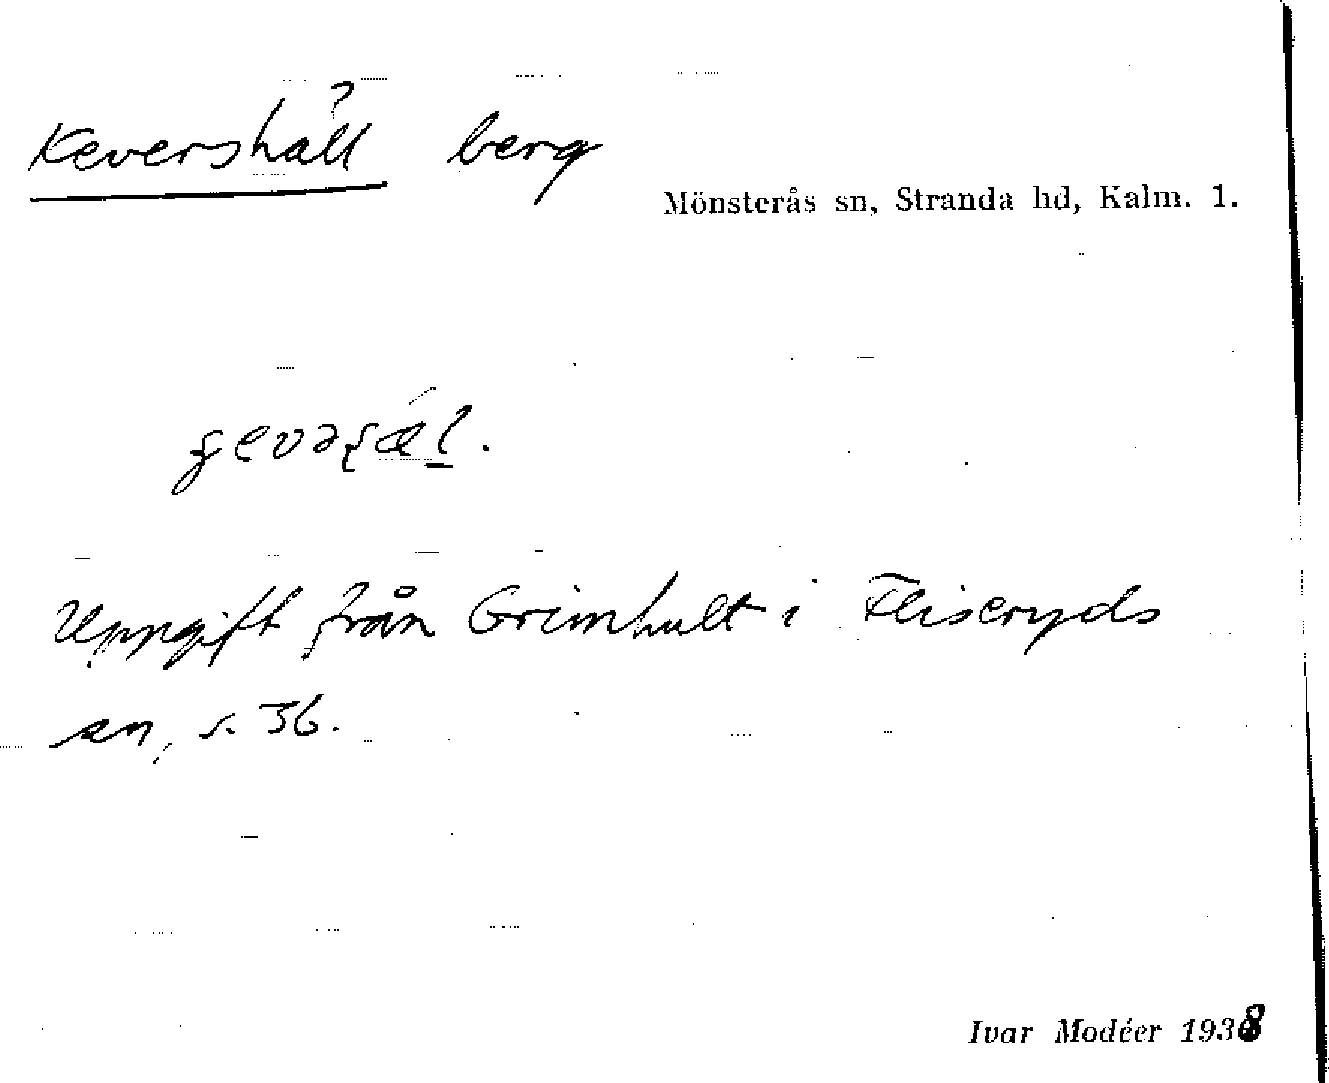 ?
Kevershäll berg
Mönsterås sn, Stranda hd, Kalm. l.
Uppgift från Grimhult i Fliseryds
sn, s. 36.
Ivar Modéer 1938